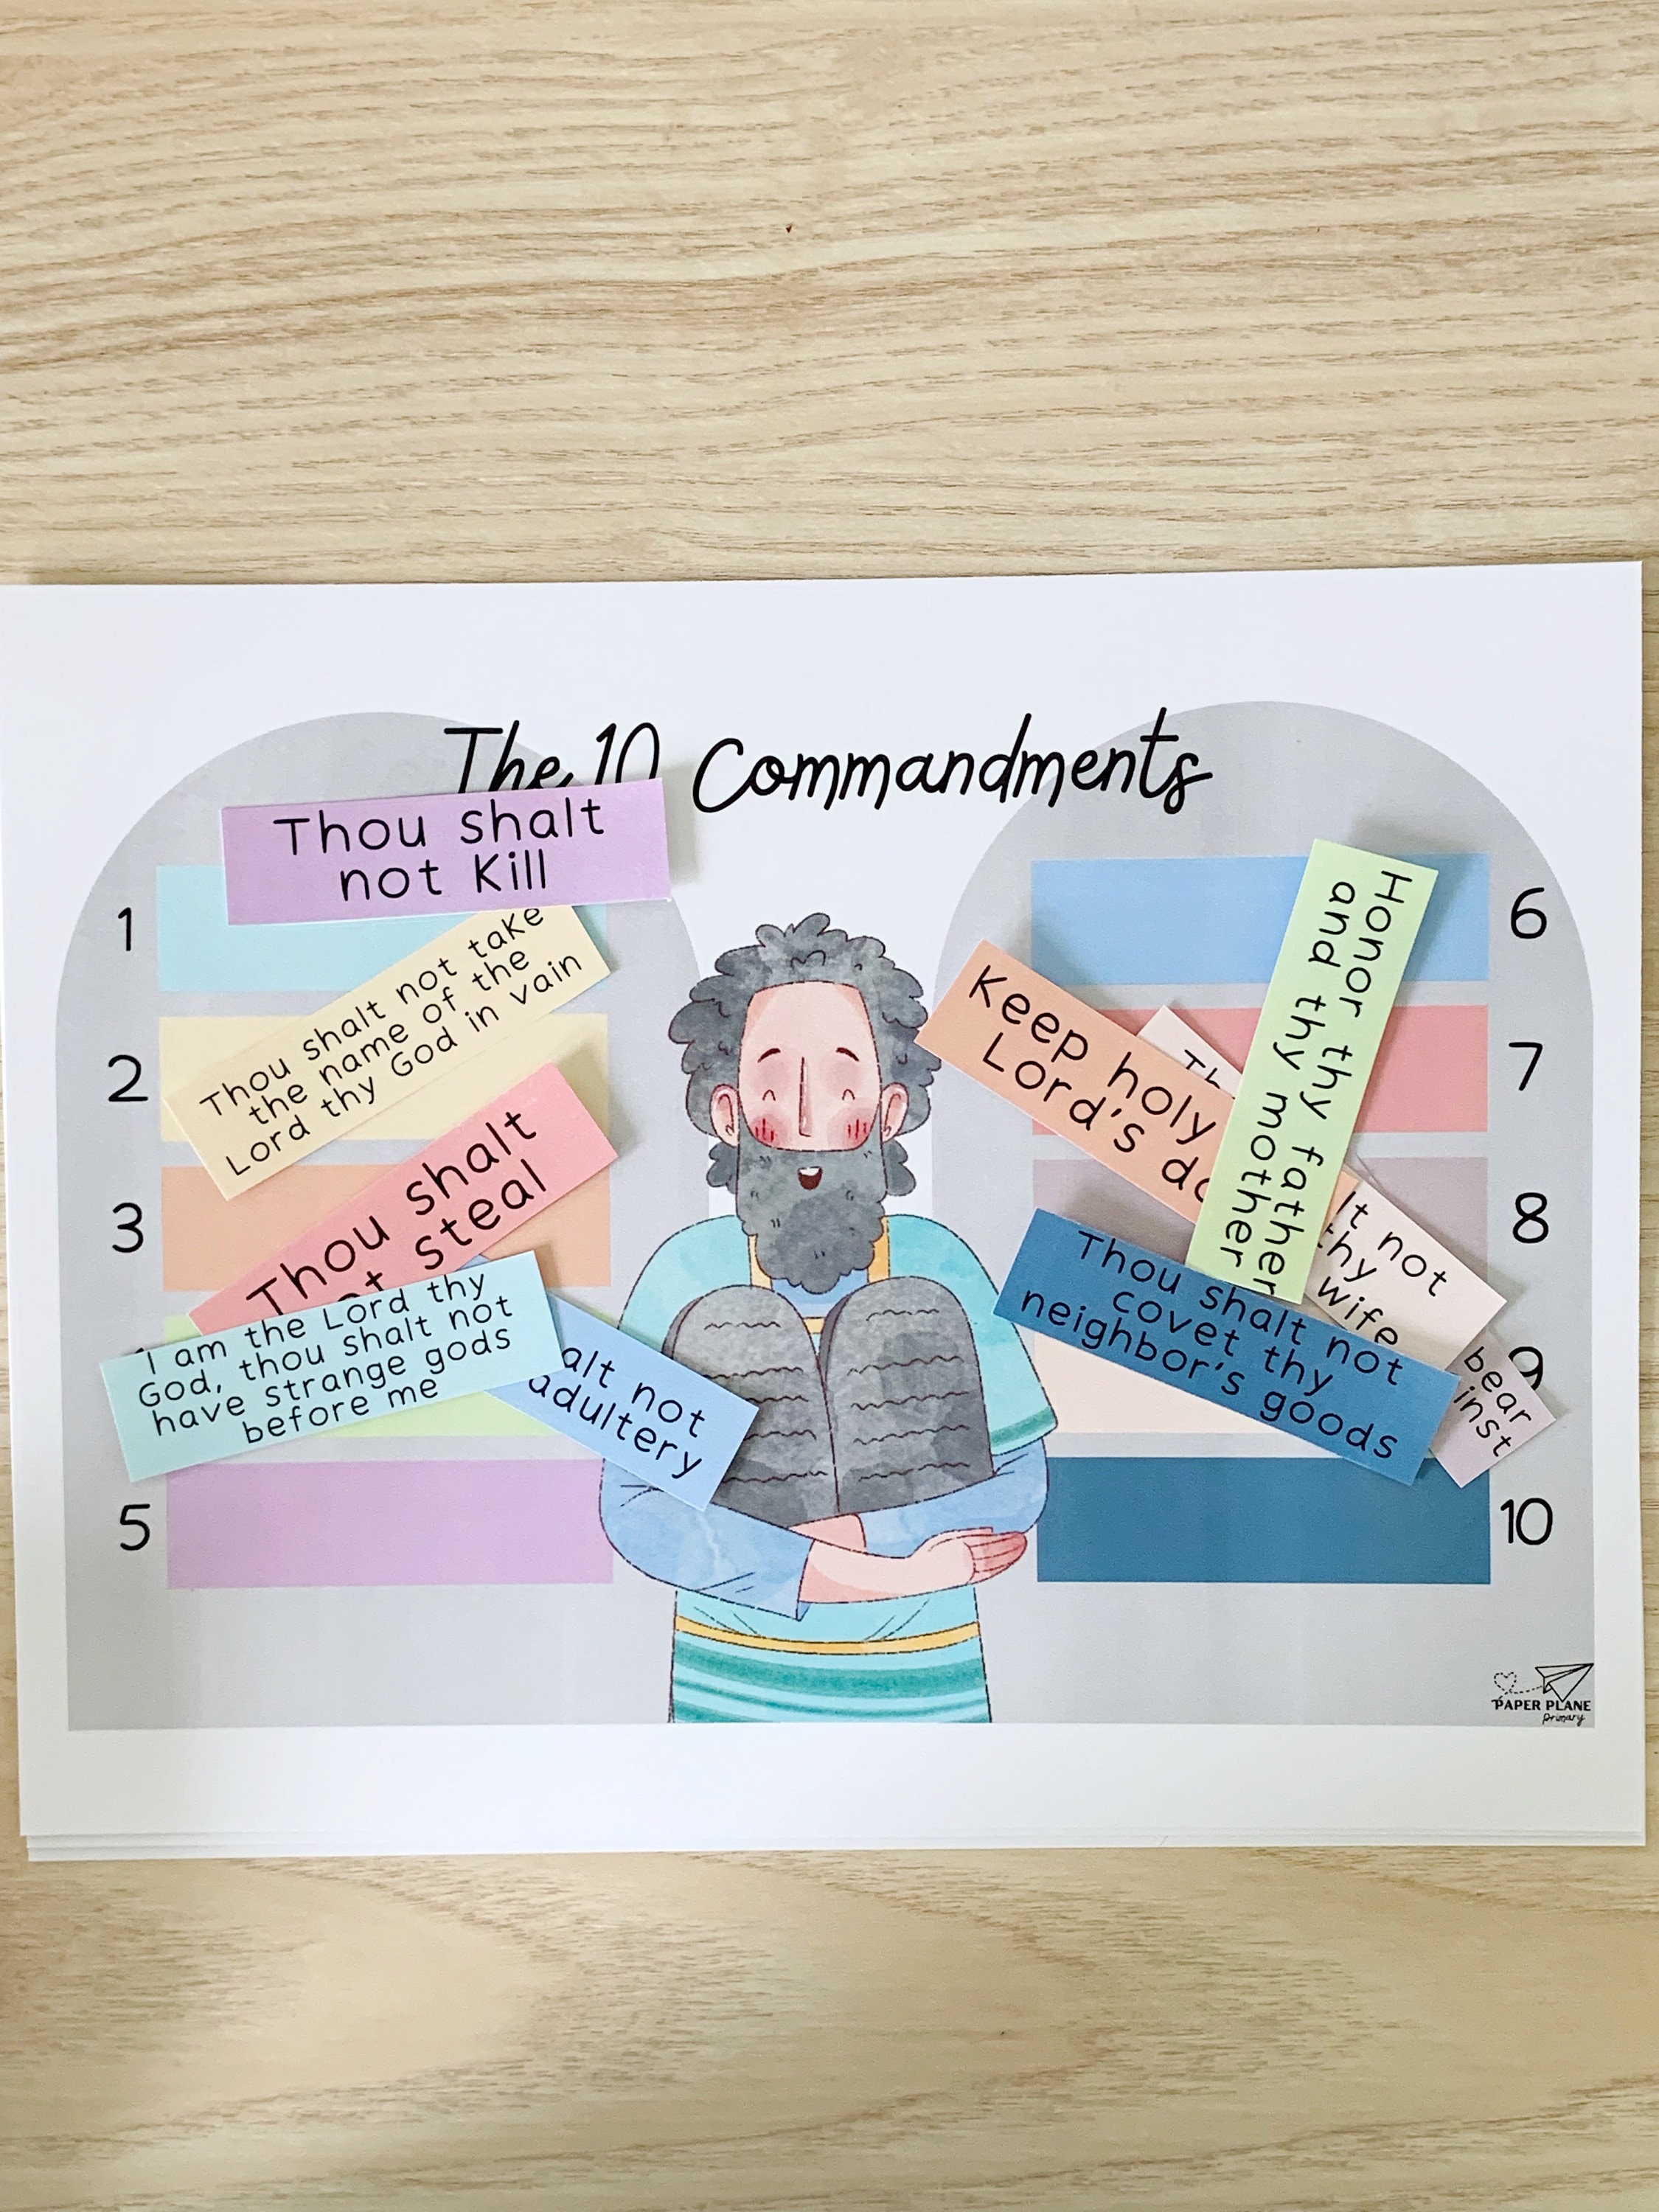 The 10 Commandments
Thou shalt
not Kill
1
Thou shalt not take
the name of the
Lord thy God in vain
2
Thou shalt
steal
3
I am the Lord thy
God, thou shalt not
have strange gods
before me
not
adultery
5
6
Honor thy father
and thy mother
Keep holy
Lord's
7
not
thy
wife
8
Thou shalt not
covet thy
neighbor's goods
9
bear
10
PAPER PLANE
primary